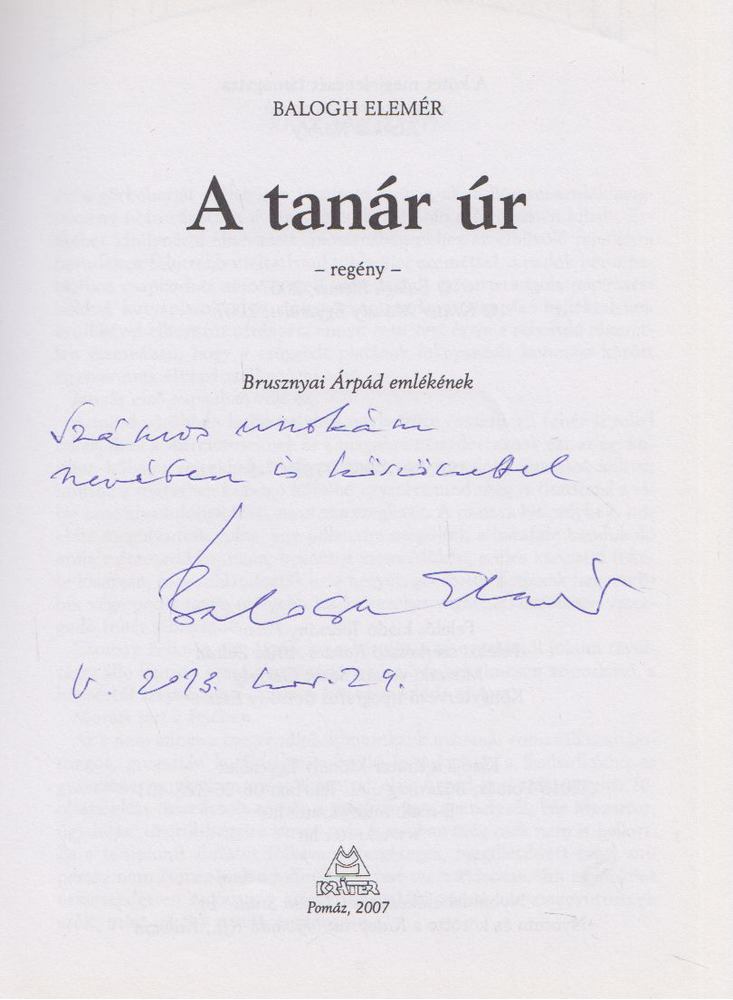 BALOGH ELEMÉR
A tanár úr
– regény –
Brusznyai Árpád emlékének
Számos unokám
nevében is köszönettel
Balogh Elemér
V. 2013. 29.
KRÁTER
Pomáz, 2007